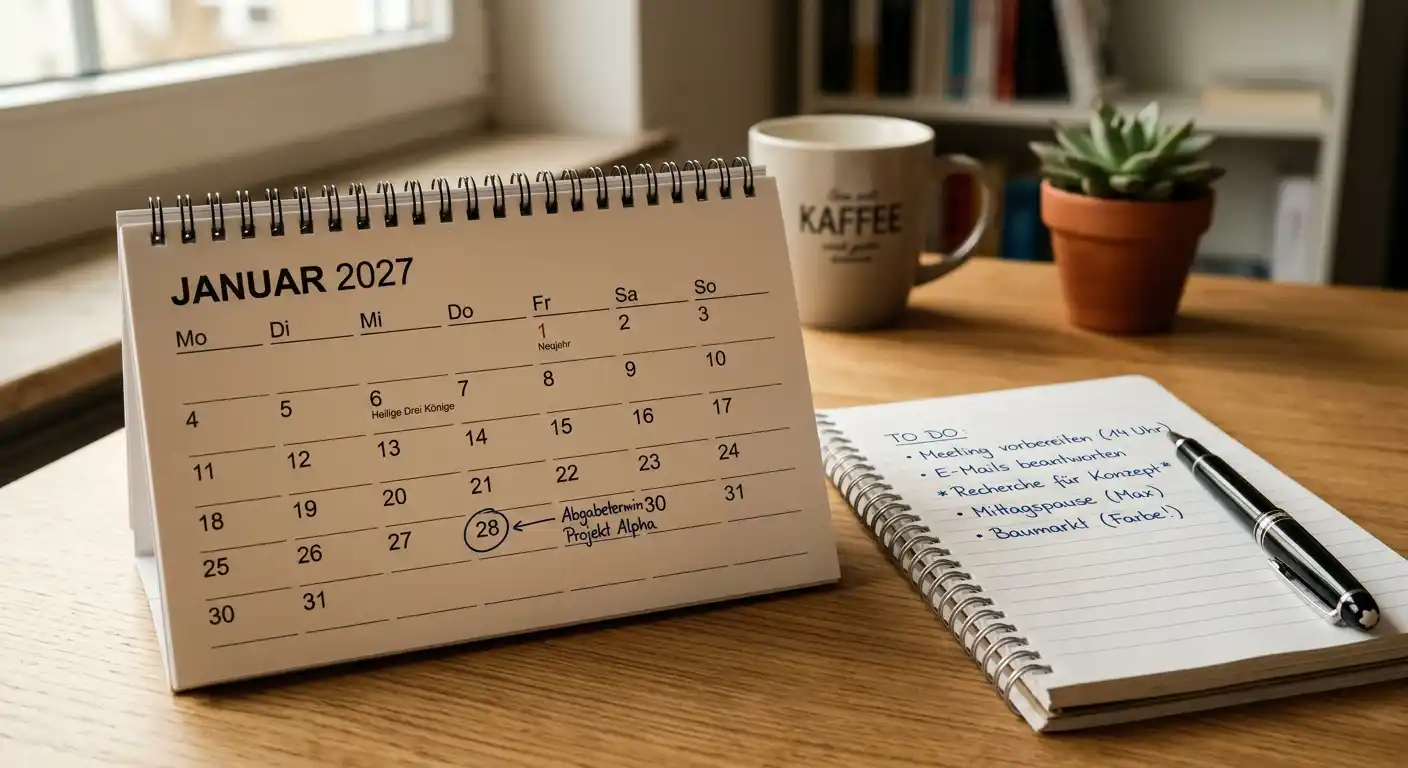 JANUAR 2027
Mo Di Mi Do Fr Sa So
1 2 3
4 5 6 7 8 9 10
Heilige Drei Könige
11 12 13 14 15 16 17
18 19 20 21 22 23 24
25 26 27 28 ← Abgabetermin 30 31
Projekt Alpha
30 31
KAFFEE
TO DO:
• Meeting vorbereiten (14 Uhr)
• E-Mails beantworten
*Recherche für Konzept*
• Mittagspause (Max)
• Baumarkt (Farbe!)